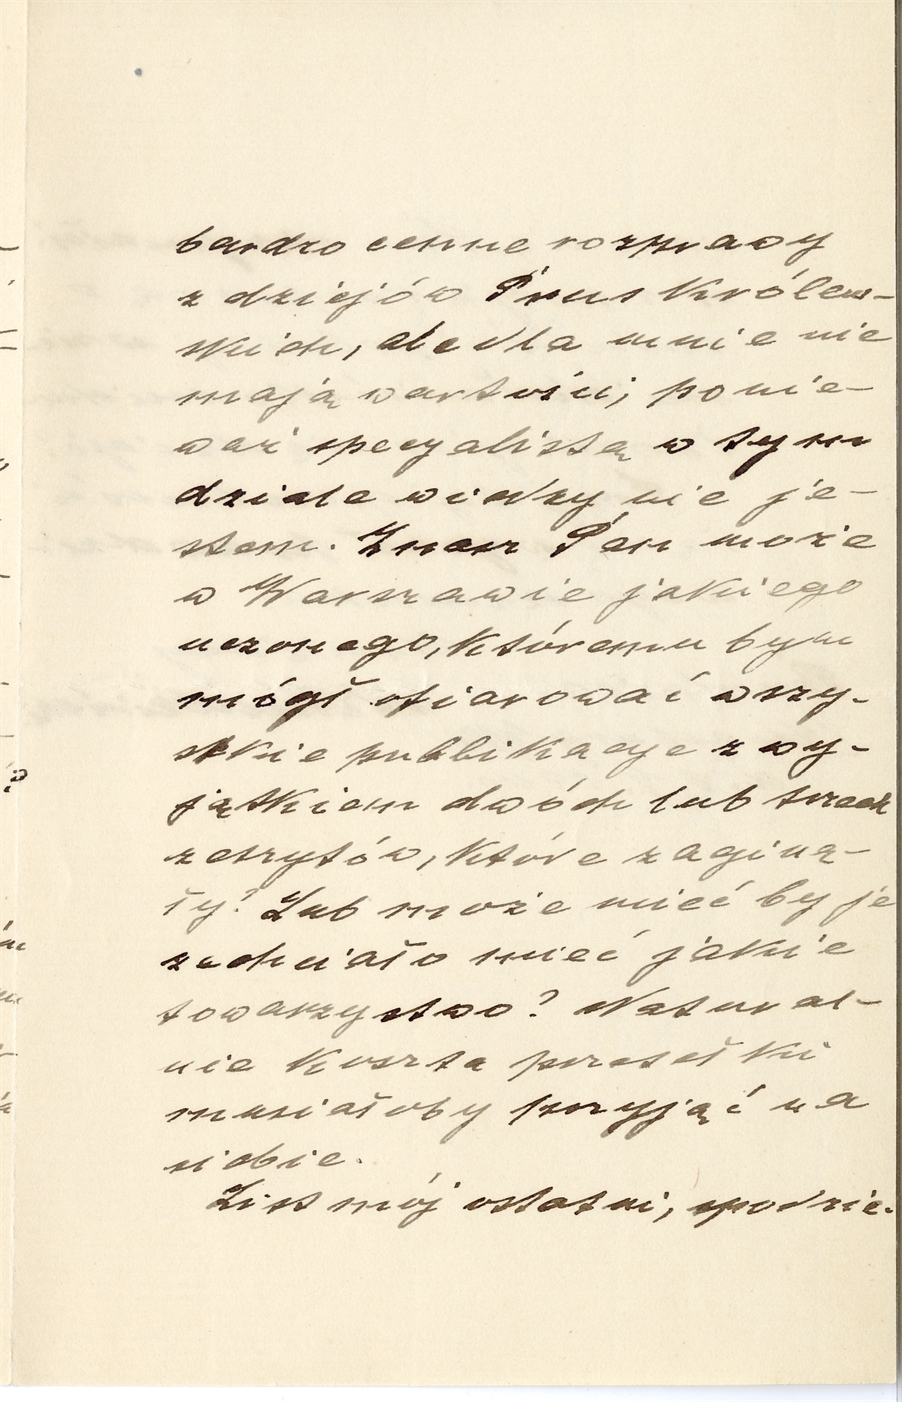 bardzo cenne rozprawy
z dziejów Prus Królew-
skich, ale dla mnie nie
mają wartości, ponie-
waż specyalistą w tym
dziale wiedzy nie je-
stem. Znasz Pan może
w Warszawie jakiego
uczonego, któremu bym
mógł ofiarować wszy-
stkie publikacye z wy-
jątkiem dwóch lub trzech
zeszytów, które zaginę-
ły? Lub może mieć by je
zechciało mieć jakie
towarzystwo? Natural-
nie koszta przesełki
musiałoby przyjąć na
siebie.
List mój ostatni, spodzie-